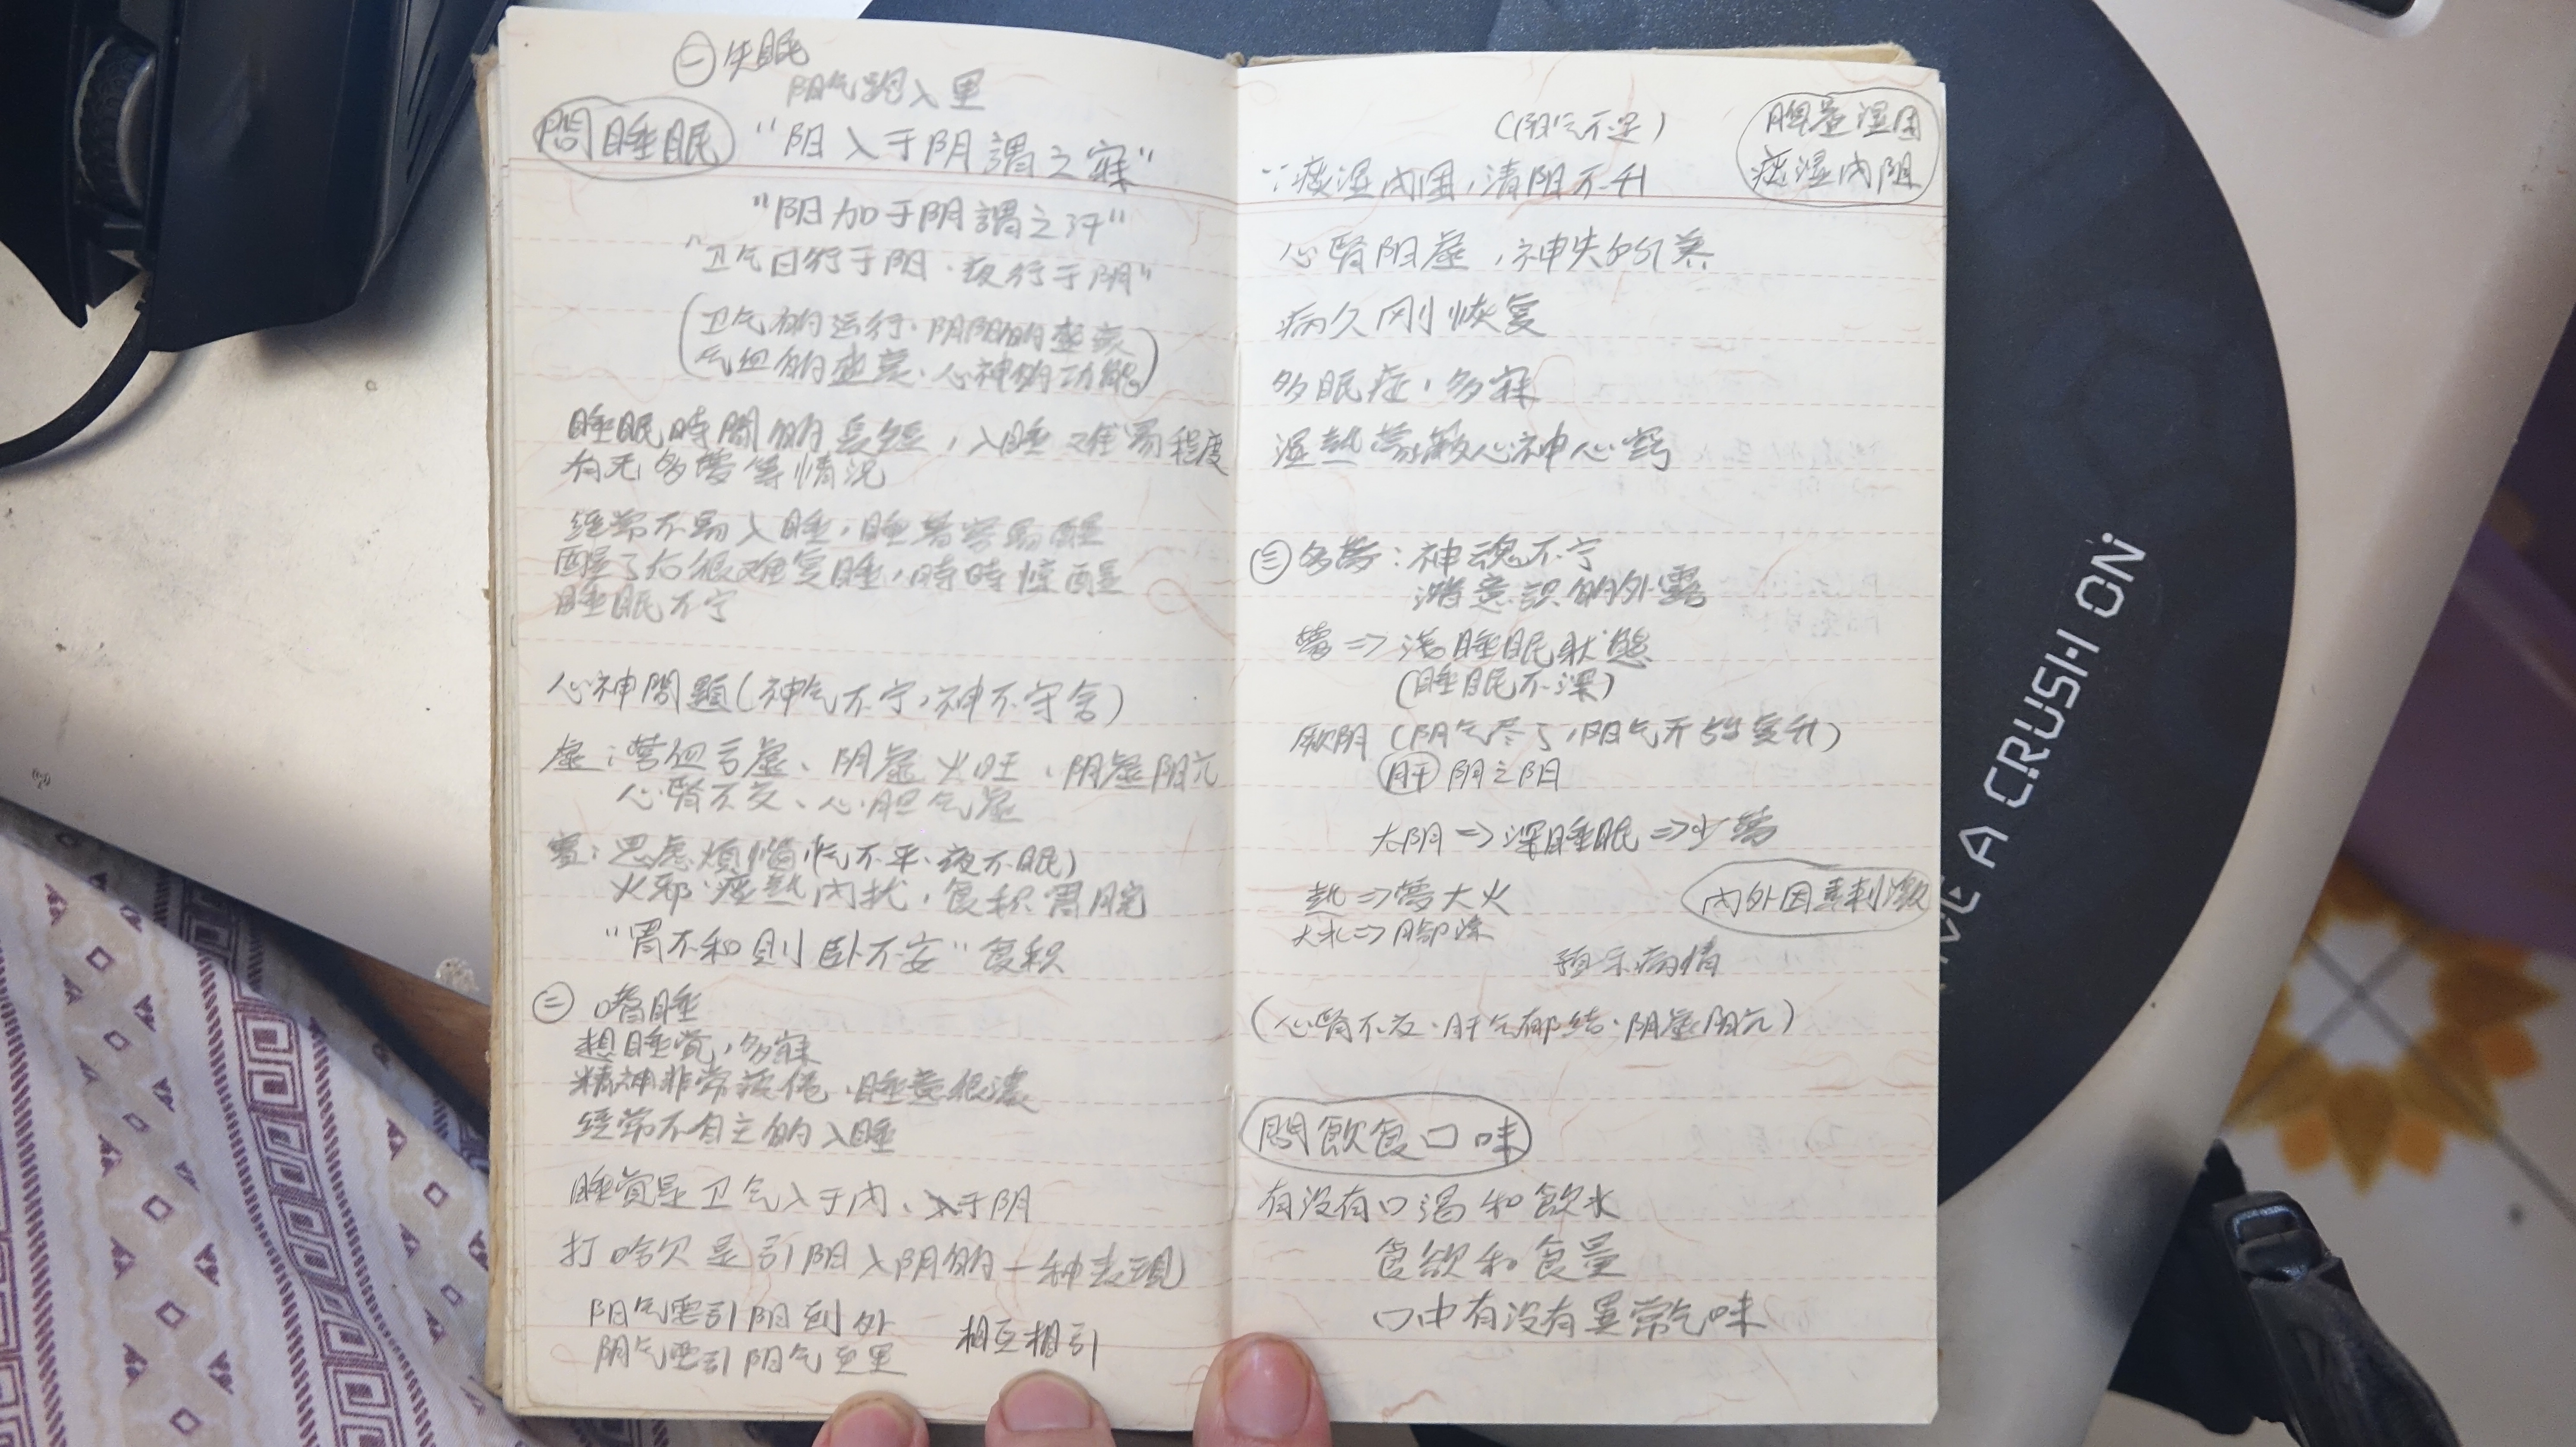 ㊀失眠
阳气跑入里
問睡眠 "阳入于阴謂之寐"
"阳加于阴謂之汗"
"卫气日行于阳.夜行于阴"
(卫气的运行.阴阳的盛衰
气血的盛衰.心神的功能)
睡眠時間的長短,入睡难易程度
有无多夢等情況
經常不易入睡,睡着容易醒
醒了后很难复睡,時時惊醒
睡眠不宁
心神問題(神气不宁,神不守舍)
虚:营血亏虚、阴虚火旺、阴虚阳亢
心腎不交、心胆气虚
實:思慮煩惱(气不平.夜不眠)
火邪.痰熱内扰,食积胃脘
"胃不和則卧不安"食积
㊁嗜睡
想睡覚,多寐
精神非常疲倦,睡意很濃
經常不自主的入睡
睡覚是卫气入于内、入于阴
打哈欠是引阳入阴的一种表現
阳气要引阴到外
阴气要引阳气至里 相互相引
(阳气不足)
∵痰湿内困,清阳不升
脾虚湿困
痰湿内阻
心腎阳虚,神失的养
病久刚恢复
多眠症,多寐
湿熱蒙蔽心神心窍
㊂多夢:神魂不宁
潜意識的外露
夢=>浅睡眠狀態
(睡眠不深)
厥阴(阴气尽了,阳气开始复升)
肝 阴之阳
太阴=>深睡眠=>少夢
熱=>夢大火
大水=>脚凉
内外因素刺激
預示病情
(心腎不交.肝气郁结.阴虚阳亢)
問飲食口味
有没有口渴和飲水
食欲和食量
口中有没有異常气味
A CRUSH ON